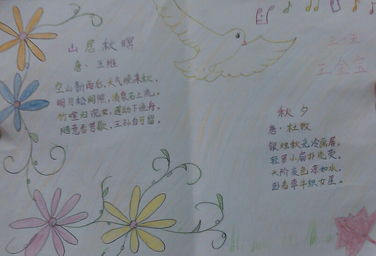 山居秋暝
唐·王维
空山新雨后,天气晚来秋。
明月松间照,清泉石上流。
竹喧归浣女,莲动下渔舟。
随意春芳歇,王孙自可留。
秋夕
唐·杜牧
银烛秋光冷画屏,
轻罗小扇扑流萤。
天阶夜色凉如水,
卧看牵牛织女星。